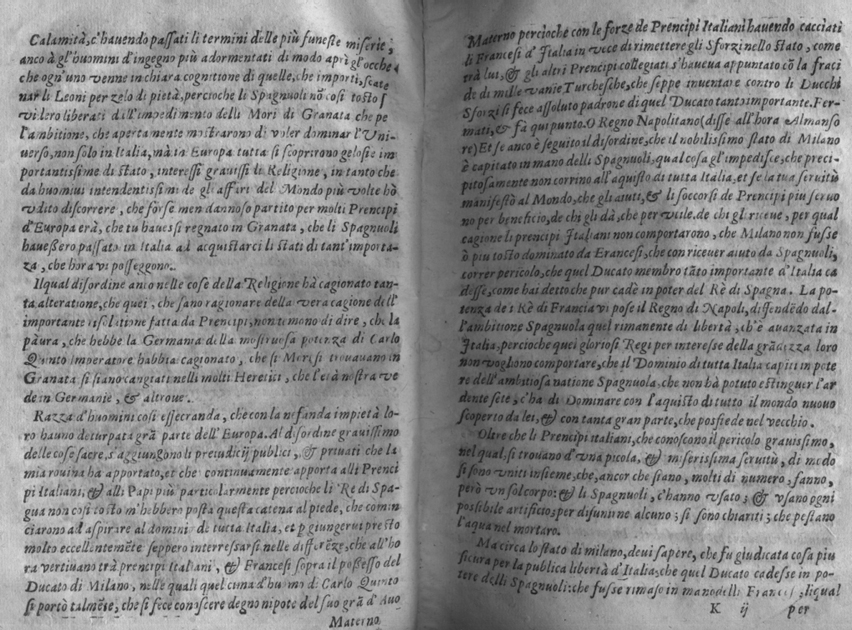 Calamità, c'hauendo passati li termini delle più funeste miserie,
anco à gl'huomini d'ingegno più adormentati di modo aprì gl'occhi
che ogn'uno venne in chiara cognitione di quelle, che importi, scate
nar li Leoni per zelo di pietà, percioche li Spagnuoli nō così tosto s
vi lero liberati dall'impedimento delli Mori di Granata che pe
l'ambitione, che apertamente mostrarono di voler dominar l'Vni-
uerso, non solo in Italia, mà in Europa tutta si scoprirono gelosie im
portantissime di stato, interessi grauissi li Religione, in tanto che
da huomiui intendentissimi de gli affari del Mondo più volte hò
vdito discorrere, che forse men dannoso partito per molti Prencipi
d'Europa erà, che tu hauessi regnato in Granata, che li Spagnuoli
haueßero passato in Italia ad acquistarci li stati di tant'importa-
za, che hora vi posseggono.
Ilqual disordine anco nelle cose della Religione hà cagionato tan-
ta alteratione, che quei, che sano ragionare della vera cagione dell'
importante risolutione fatta da Prencipi, non temono di dire, che la
paura, che hebbe la Germania della mostruosa potenza di Carlo
Quinto Imperatore habbia cagionato, che si Mori si trouauano in
Granata si siano cangiati nelli molti Heretici, che l'età nostra ve
de in Germanie, & altroue.
Razza d'huomini così essecranda, che con la nefanda impietà lo-
ro hauno deturpata grā parte dell'Europa. Al disordine grauissimo
delle cose sacre, s'aggiungono li preiudicij publici, & priuati che la
mia rouina ha apportato, et che continuamente apporta alli Prenci
pi Italiani, & alli Papi più particolarmente percioche li Rè di Spa-
gua non così tosto m'hebbero posta questa catena al piede, che comin
ciarono ad aspirare al dominio de tutta Italia, et p giungerui presto
molto eccellentemēte seppero interressarsi nelle differēze, che all'ho
ra vertiuano trà prencipi Italiani, & Francesi sopra il poßesso del
Ducato di Milano, nelle quali quel cima d'huomo di Carlo Quinto
si portò talmēte, che si fece conoscere degno nipote del suo grā d'Auo
Materno
Materno percioche con le forze de Prencipi Italiani hauendo cacciati
li Francesi d'Italia in vece di rimettere gli Sforzi nello stato, come
trà lui, & gli altri Prencipi collegiati s'haueua appuntato cō la fraci
de di mille vanie Turchesche, che seppe inuentare contro li Ducchi
Sforzi si fece assoluto padrone di quel Ducato tanto importante. Fer-
mati, & fà quì punto. O Regno Napolitano (disse all'hora Almanso
re) Et se anco è seguito il disordine, che il nobilissimo stato di Milano
è capitato in mano delli Spagnuoli, qual cosa gl'impedisce, che preci-
pitosamente non corrino all'aquisto di tutta Italia, et se la tua seruitù
manifestò al Mondo, che gli aiuti, & li soccorsi de Prencipi piu seruo
no per beneficio, de chi gli dà, che per vtile, de chi gli riceue, per qual
cagione li prencipi Italiani non comportarono, che Milano non fusse
ò piu tosto dominato da Francesi, che con riceuer aiuto da Spagnuoli,
correr pericolo, che quel Ducato membro tāto importante d'Italia ca
desse, come hai detto che pur cadè in poter del Rè di Spagna. La po-
tenza de i Rè di Francia vi pose il Regno di Napoli, diffendēdo dal-
l'ambitione Spagnuola quel rimanente di libertà, ch'è auanzata in
Italia, percioche quei gloriosi Regi per interesse della grādizza loro
non vogliono comportare, che il Dominio di tutta Italia capiti in pote
re dell'ambitiosa natione Spagnuola, che non hà potuto estinguer l'ar
dente sete, c'ha di Dominare con l'aquisto di tutto il mondo nuouo
scoperto da lei, & con tanta gran parte, che posfiede nel vecchio.
Oltre che li Prencipi italiani, che conoscono il pericolo grauissimo,
nel qual, si trouano d'vna picola, & miserissima seruitù, di modo
si sono vniti insieme, che, ancor che siano, molti di numero, fanno,
però vn sol corpo: & li Spagnuoli, c'hanno vsato; & vsano ogni
possibile artificio, per disunirne alcuno; si sono chiariti; che pestano
l'aqua nel mortaro.
Ma circa lo stato di milano, deui sapere, che fu giudicata cosa piu
sicura per la publica libertà d'Italia, che quel Ducato cadesse in po-
tere delli Spagnuoli: che fusse rimaso in mano delli Francesi, ilqual
K ij per